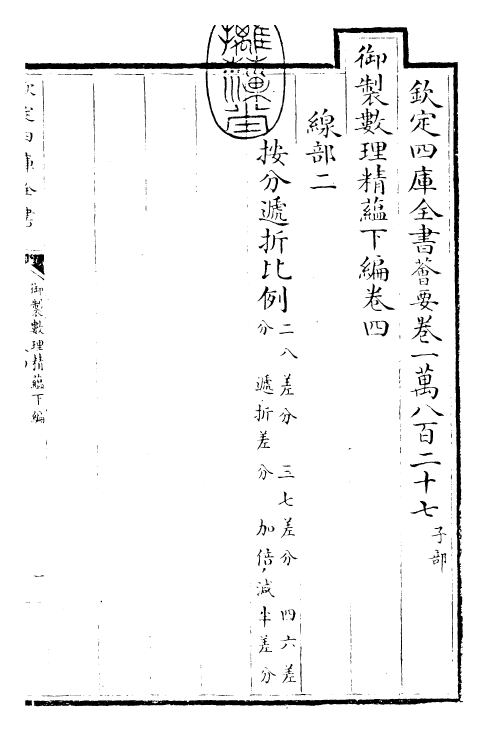 欽定四庫全書薈要卷一萬八百二十七 子部
御製數理精蘊下編卷四
線部二
按分遞折比例 二八差分 三七差分 四六差
分 遞折差分 加倍減半差分
欽定四庫全書
御製數理精蘊下編
一